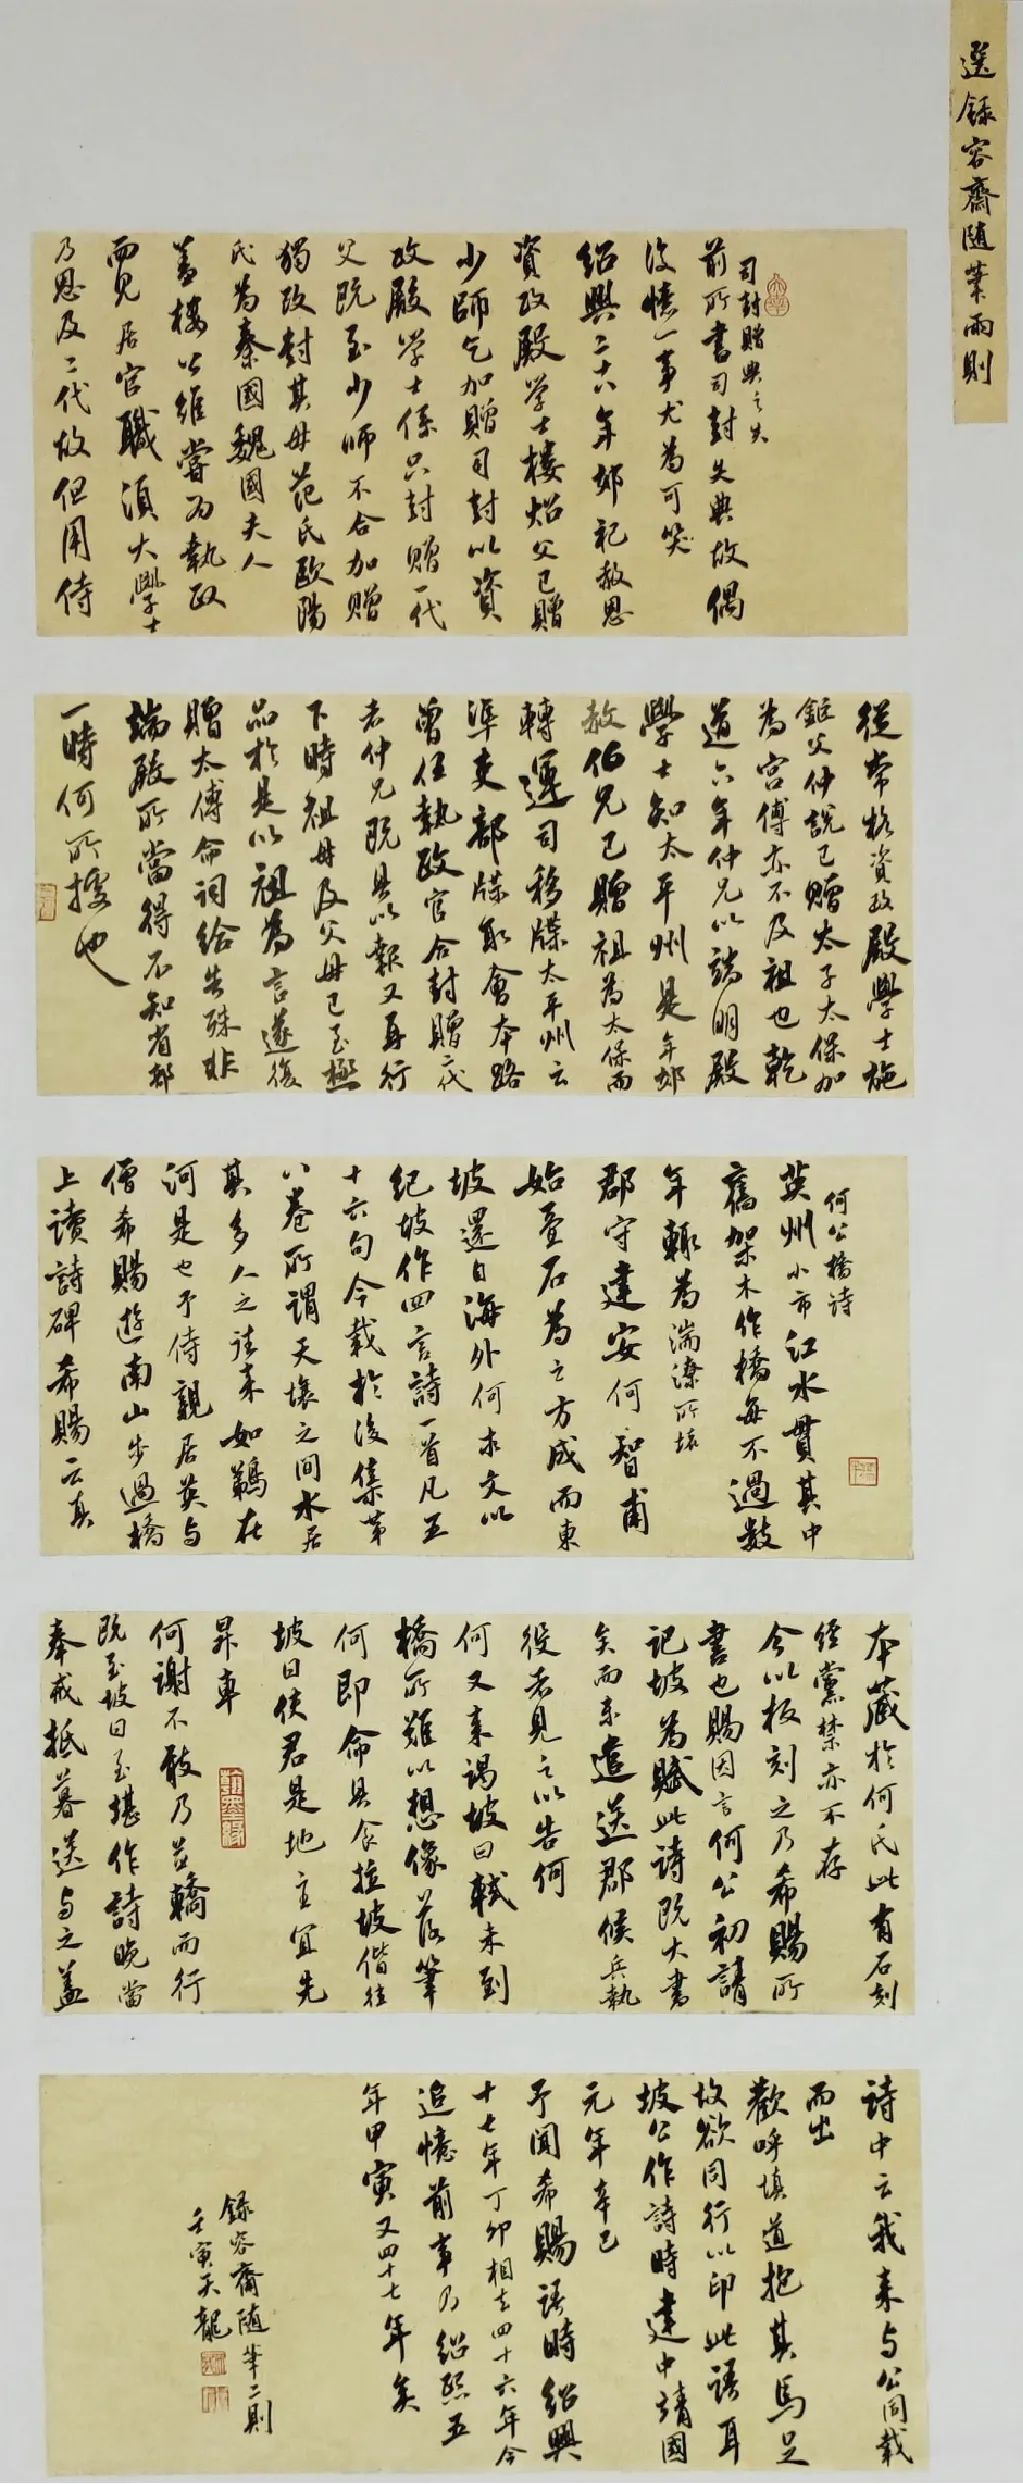 選錄容齋随筆兩則
司封贈典之失
前所書司封失典故偶
後憶一事尤為可笑
紹興二十八年郊祀赦恩
資政殿学士樓炤父已贈
少師乞加贈司封以資
政殿学士係只封贈一代
父既至少师不合加贈
獨改封其母范氏歐陽
氏為秦國魏國夫人
蓋樓公雖嘗為執政
而見居官職須大學士
乃恩及二代故但用侍
從常格資政殿學士施
鉅父仲說已贈太子太保加
為宫傅亦不及祖也乾
道六年仲兄以端明殿
學士知太平州是年郊
赦伯兄已贈祖為太保而
轉運司移牒太平州云
準吏部牒取會本路
曾任執政官合封贈二代
者仲兄既具以報又再行
下時祖母及父母已至極
品於是以祖為言遂復
贈太傅命詞给告殊非
端殿所當得不知省部
一時何所據也
何公橋诗
英州小市江水貫其中
舊架木作橋每不過数
年輒為湍潦所壞
郡守建安何智甫
始疊石為之方成而東
坡還自海外何求文以
紀坡作四言詩一首凡五
十六句今載於後集第
八卷所謂天壤之間水居
其多人之往来如鵜在
河是也予侍親居英与
僧希賜遊南山步過橋
上讀詩碑希賜云真
本藏於何氏此有石刻
经黨禁亦不存
今以板刻之乃希賜所
書也賜因言何公初請
記坡為賦此詩既大書
矣而未遣送郡候兵執
役者見之以告何
何又来謁坡曰軾未到
橋所難以想像落筆
何即命具食拉坡偕往
坡曰使君是地主宜先
昇車
何謝不敢乃並轎而行
既至坡曰至堪作詩晚當
奉戒抵暮送与之蓋
詩中云我来与公同載
而出
歡呼填道抱其馬足
故欲同行以印此語耳
坡公作詩時建中靖國
元年辛巳
予聞希賜語時紹興
十七年丁卯相去四十六年今
追憶前事乃紹熙五
年甲寅又四十七年矣
錄容齋随筆二則
壬寅天龍